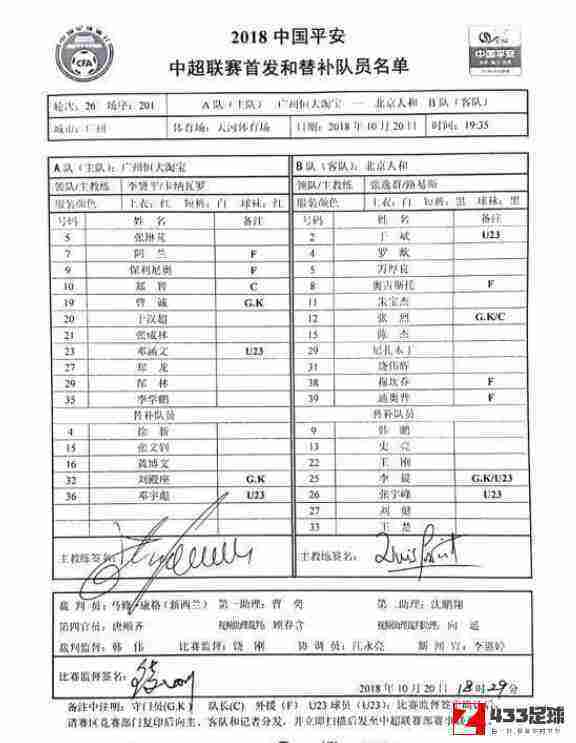 2018 中国平安
中超联赛首发和替补队员名单
CFA
中国平安
轮次: 26 场序: 201 A 队 (主队) 广州恒大淘宝 — 北京人和 B 队 (客队)
城市: 广州 体育场: 天河体育场 日期: 2018 年 10 月 20 日 时间: 19:35
A 队 (主队): 广州恒大淘宝 B 队 (客队): 北京人和
领队/主教练 李贤平/卡纳瓦罗 领队/主教练 张逸群/路易斯
服装颜色 上衣: 红 短裤: 白 球袜: 红 服装颜色 上衣: 白 短裤: 黑 球袜: 黑
号码 姓 名 备注 号码 姓 名 备注
5 张琳芃 2 于 斌 U23
7 阿 兰 F 4 罗 歆
9 保利尼奥 F 5 万厚良
10 郑 智 C 8 奥古斯托 F
19 曾 诚 G.K 11 朱宝杰
20 于汉超 12 张 烈 G.K/C
21 张成林 15 陈 杰
23 邓涵文 U23 29 尼扎木丁
27 郑 龙 31 饶伟辉
29 郜 林 38 穆坎乔 F
35 李学鹏 39 迪奥普 F
替补队员 替补队员
4 徐 新 9 韩 鹏
15 张文钊 13 史 亮
16 黄博文 22 王 刚
32 刘殿座 G.K 25 李 G.K/U23
36 邓宇彪 U23 26 张宇峰 U23
27 刘 健
33 王 楚
主教练签名: 主教练签名:
裁 判 员: 马修·康格 (新西兰) 第一助理: 曹 奕 第二助理: 沈鹏翔
第四官员: 唐顺齐 视频助理裁判: 顾春含 视频助理裁判助理: 向 遥
裁判监督: 韩 伟 比赛监督: 饶 刚 协调员: 江永亮 新闻官: 李璐婷
比赛监督签名:
2018 年 10 月 20 日 18 时 29 分
备注中注明: 守门员(G.K) 队长(C) 外援 (F) U23 球员 (U23); 比赛监督签字
请赛区竞赛部门复印后向主、客队和记者分发, 并立即扫描后发至中超联赛部
433足球